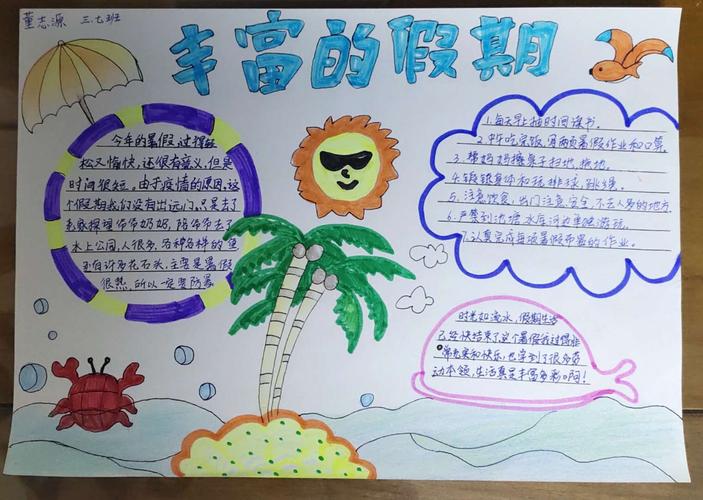 董志源 三.七班
丰富的假期
今年的暑假,过得轻
松又愉快,还很有意义,但是
时间很短。由于疫情的原因,这
个假期我们没有出远门,只是去了
老家探望爷爷奶奶,陪爷爷去了
水上公园,人很多,各种各样的鱼
还有许多花石头,主要是暑假
很热,所以一定要防暑
1.每天早上抽时间读书。
2.中午吃完饭,写两页暑假作业和口算
3.帮妈妈擦桌子扫地、拖地。
4.锻炼身体和玩排球、跳绳。
5.注意饮食,出门注意安全,不去人多的地方
6.严禁到池塘水库河边里随游玩。
7.认真完成每项暑假布置的作业。
时光如流水,假期生活
已经快结束了,这个暑假我过得非
常充实和快乐,也学到了很多劳
动本领,生活真是丰富多彩啊!